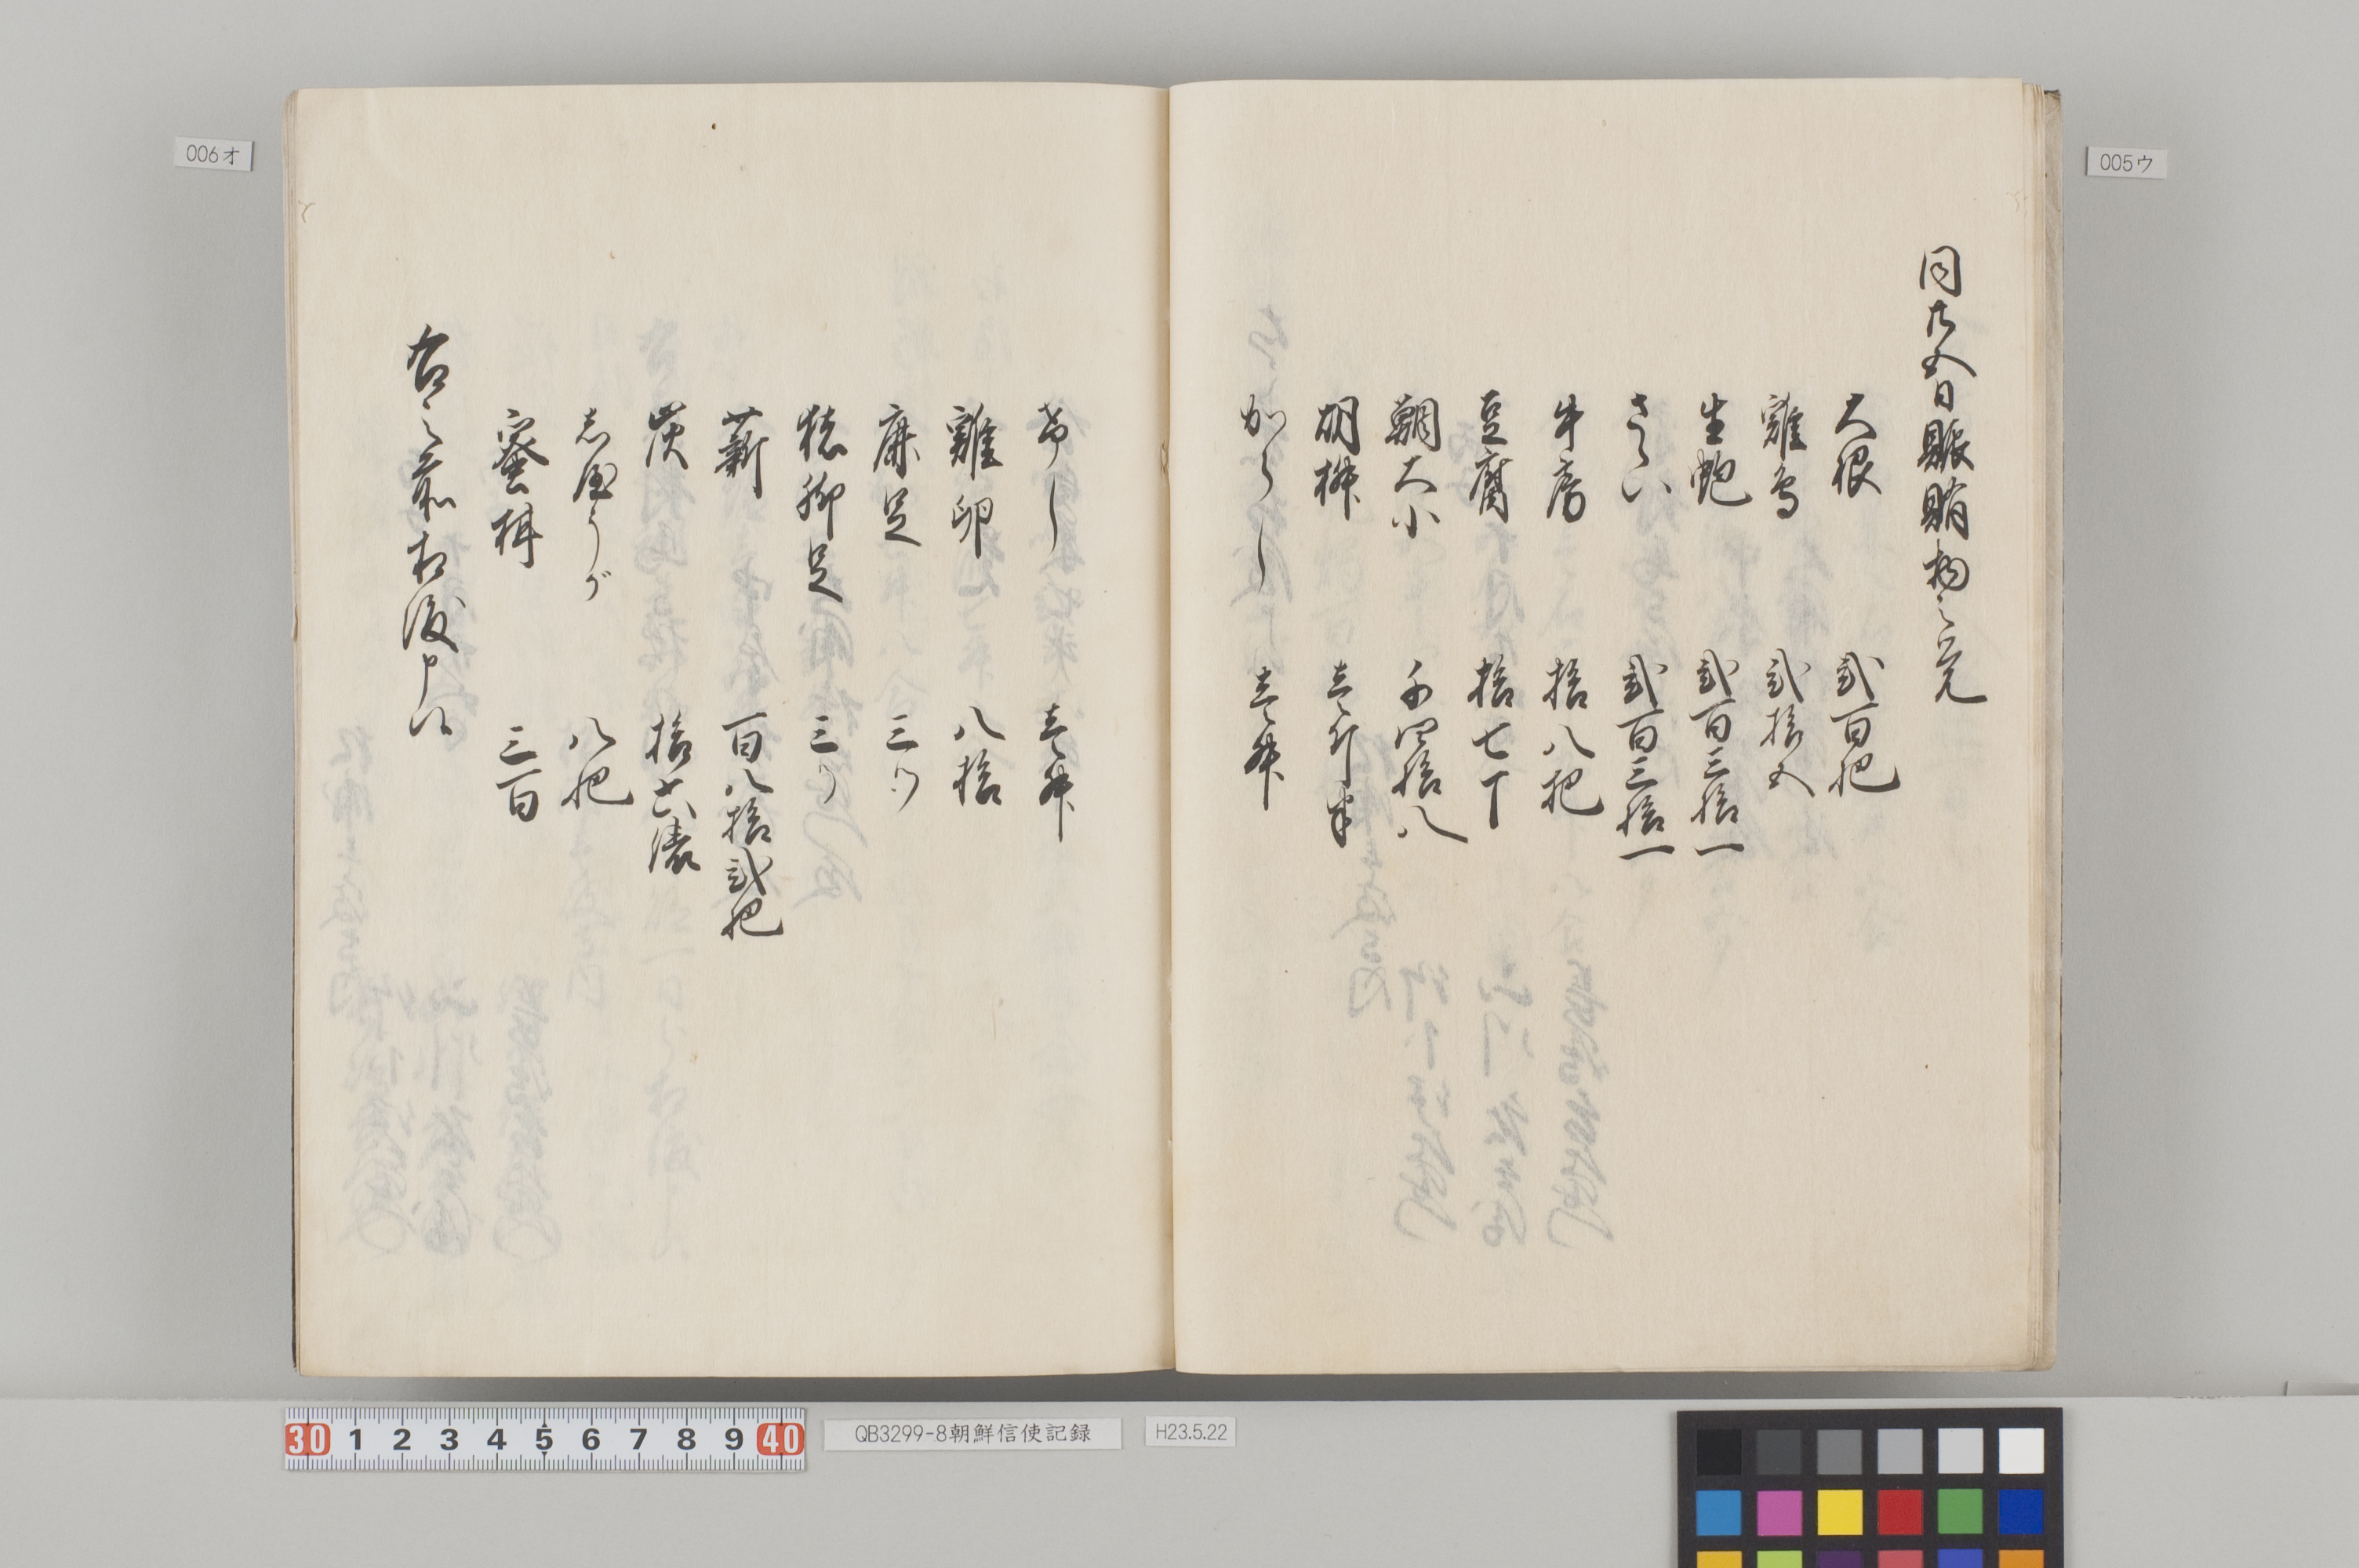 同廿五日賑賄物之覚
大根 弐百把
雞鳥 弐拾五
生鮑 弐百三拾一
さゝい 弐百三拾一
牛房 拾八把
豆腐 拾七丁
鯛大小 千四拾八
胡椒 壱斤半
からし 壱舛
けし 壱舛
雞卵 八拾
鹿足 三ツ
猪脚足 三ツ
薪 百八拾弐把
炭 拾六俵
志やうが 八把
蜜柑 三百
右之前相渡申候
006オ
005ウ
30 1 2 3 4 5 6 7 8 9 40
QB3299-8朝鮮信使記録
H23.5.22